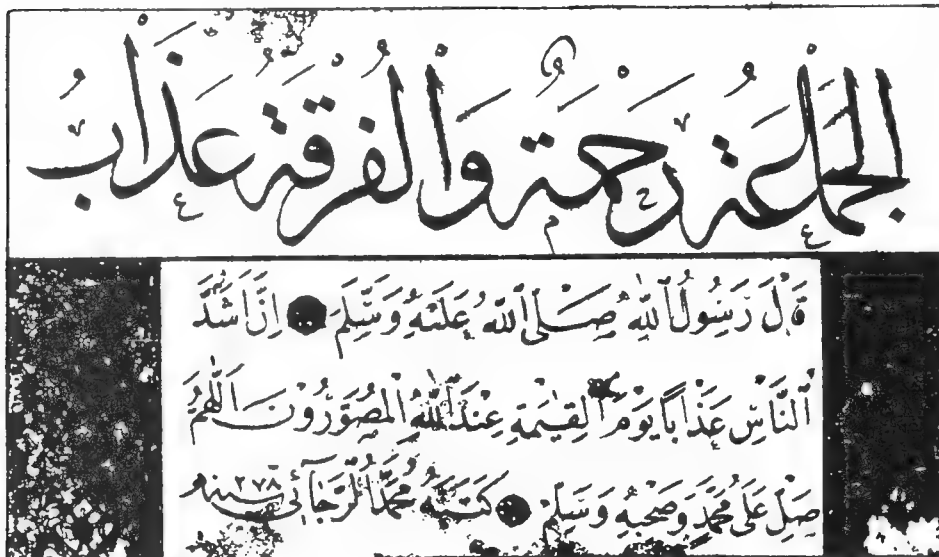 الجماعة رحمة والفرقة عذاب
قَالَ رَسُولُ اللّٰهِ صَلَّى اللّٰهُ عَلَيْهِ وَسَلَّمَ اِنَّ اَشَدَّ
النَّاسِ عَذَابًا يَوْمَ الْقِيٰمَةِ عِنْدَ اللّٰهِ الْمُصَوِّرُونَ اَللّٰهُمَّ
صَلِّ عَلَى مُحَمَّدٍ وَصَحْبِهِ وَسَلِّمْ كَتَبَهُ مُحَمَّد الرجائي سنه